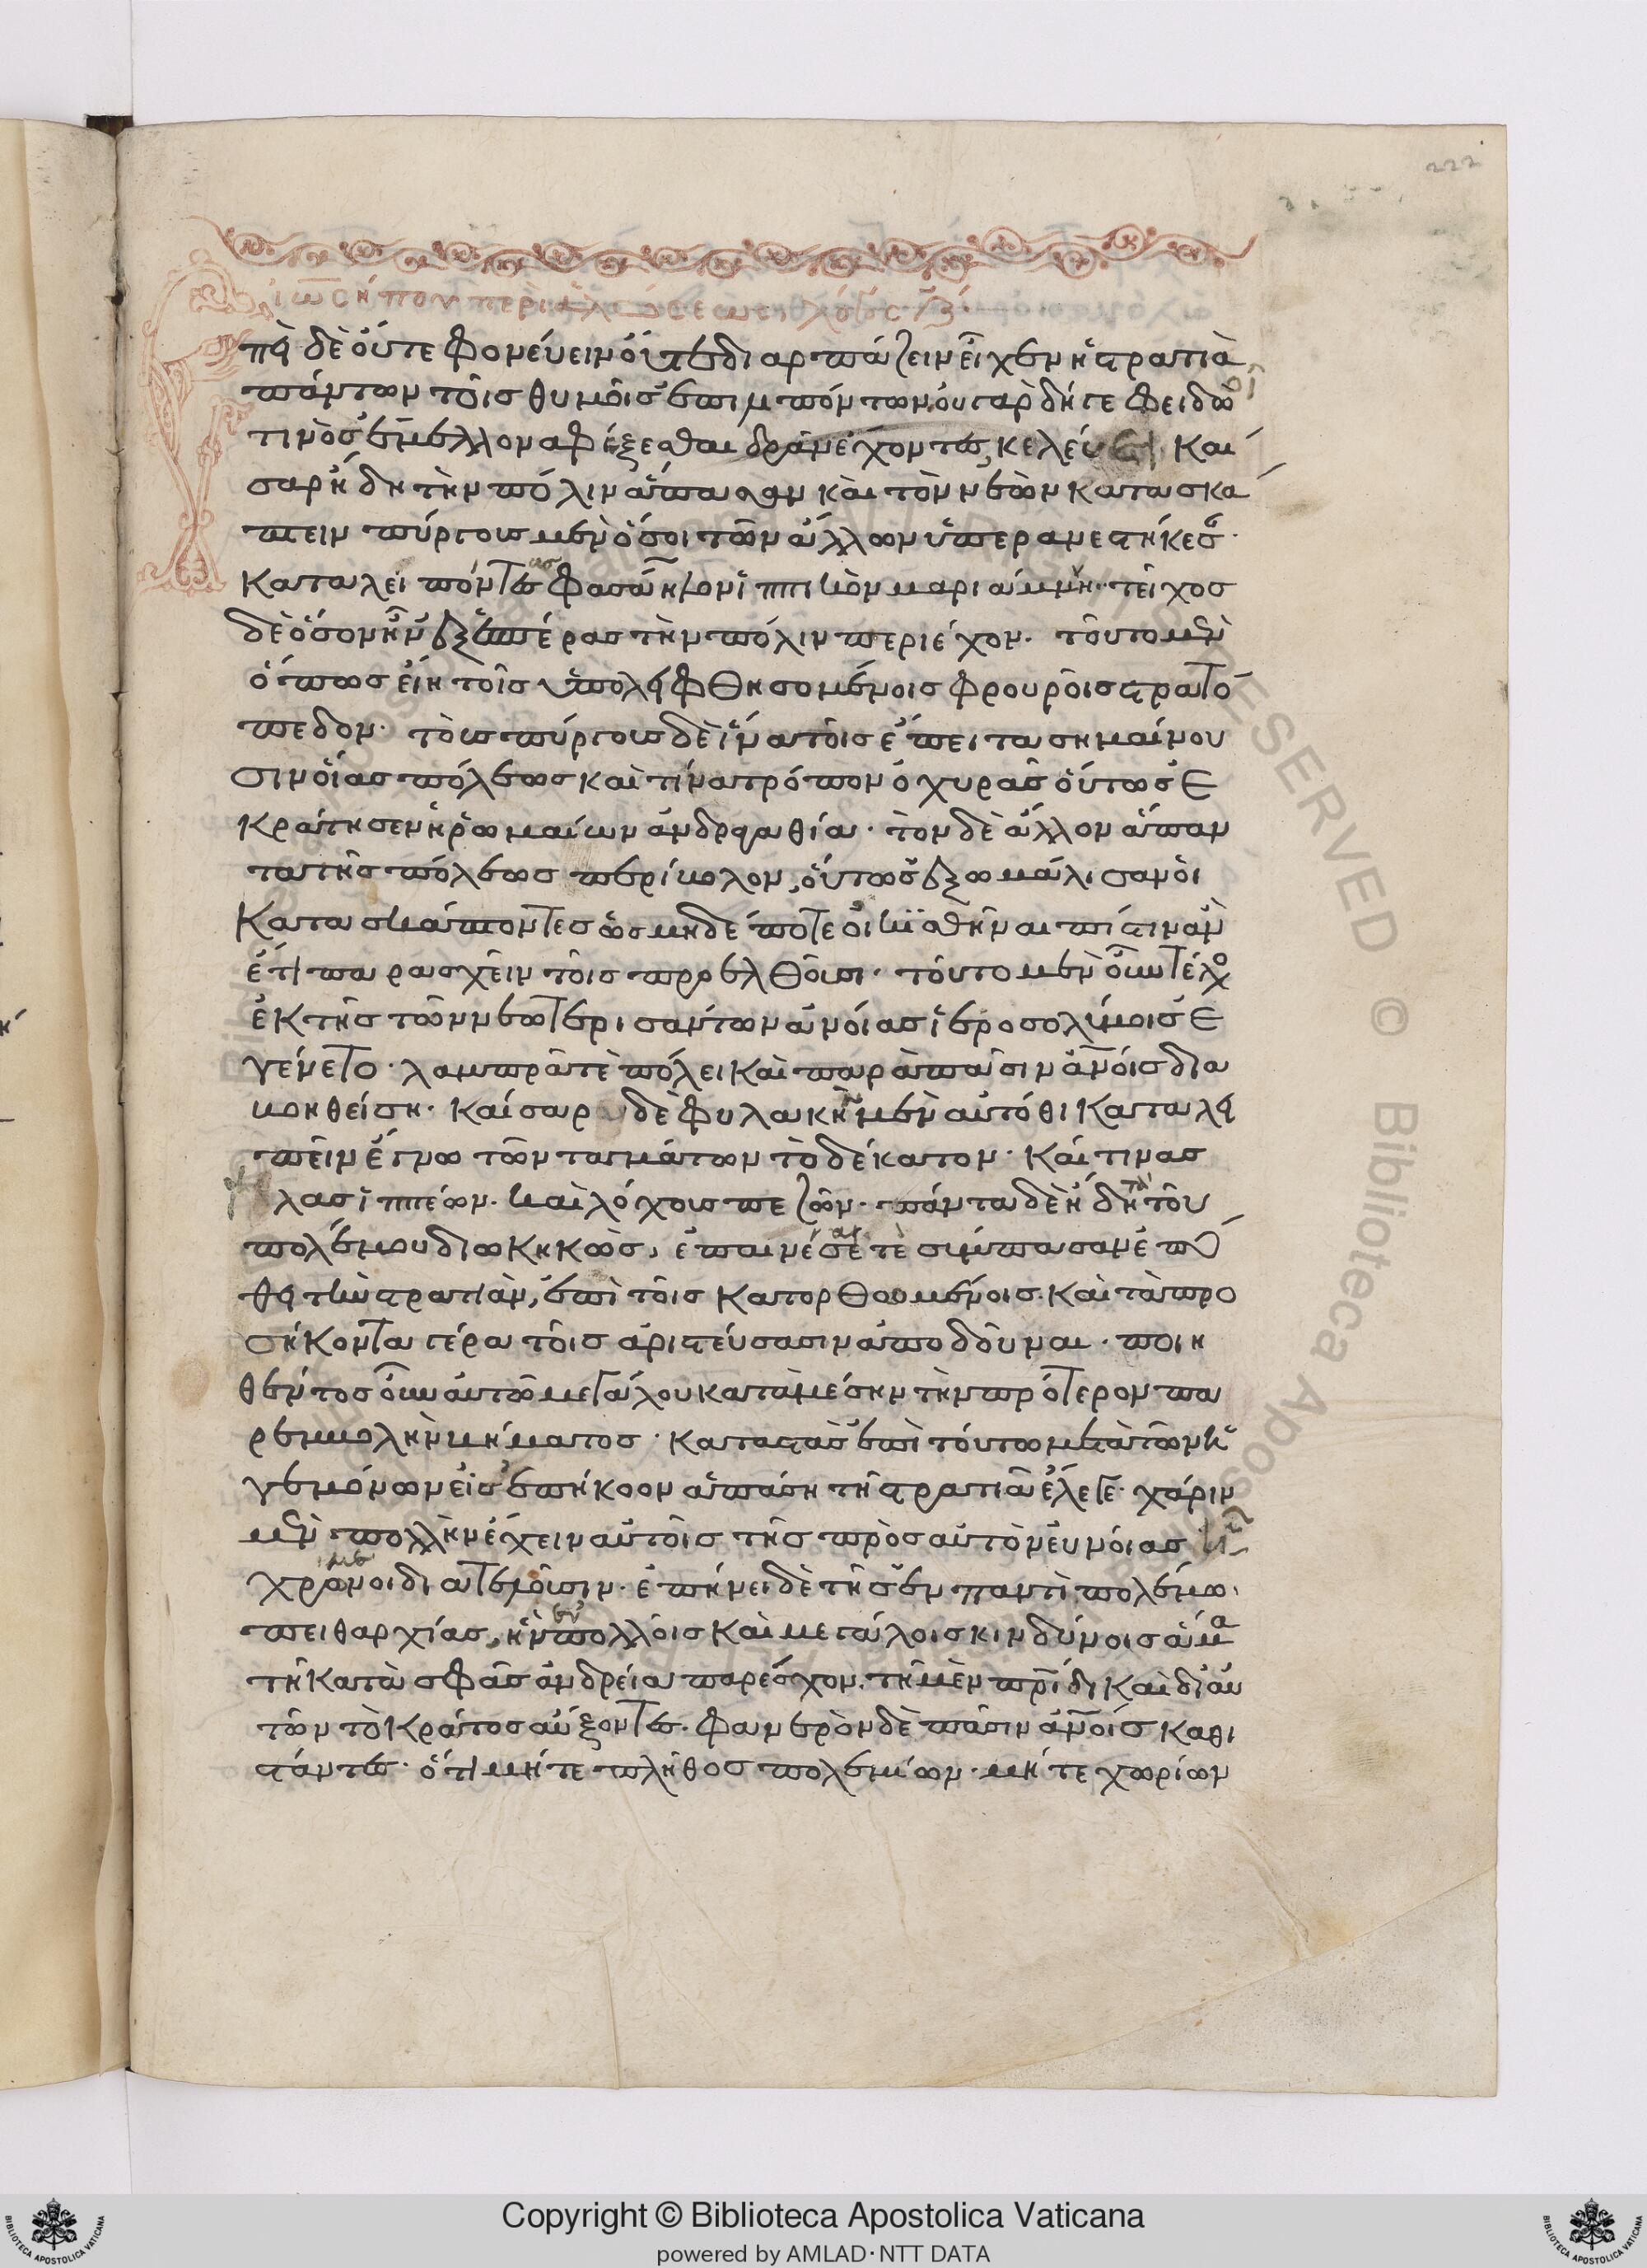 222
ἰωσήπου περὶ ἁλώσεως λόγος ζ
πεὶ δὲ οὔτε φονεύειν οὔτε διαρπάζειν εἶχεν ἡ στρατιὰ
πάντων τοῖς θυμοῖς ἐπιλιπόντων, οὐ γὰρ δή γε φειδοῖ
τινὸς ἔμελλον ἀφέξεσθαι δρᾶν ἔχοντες, κελεύει Καῖ
σαρ ἤδη τὴν πόλιν ἅπασαν καὶ τὸν νεὼν κατασκά
πτειν πύργους μὲν ὅσοι τῶν ἄλλων ὑπερανεστήκεσαν
καταλειπόντας φασάηλον ἱππικὸν μαριάμμην. τεῖχος
δὲ ὅσον ἦν ἐξ ἑσπέρας τὴν πόλιν περιέχον. τοῦτο μὲν
ὅπως εἴη τοῖς ὑπολειφθησομένοις φρουροῖς στρατό
πεδον. τοὺς πύργους δὲ ἵνα τοῖς ἔπειτα σημαίνου
σιν οἵας πόλεως καὶ τίνα τρόπον ὀχυρᾶς οὕτως ἐ
κράτησεν ἡ ῥωμαίων ἀνδραγαθία. τὸν δὲ ἄλλον ἅπαν
τα τῆς πόλεως περίβολον, οὕτως ἐξωμάλισαν οἱ
κατασκάπτοντες ὡς μηδέποτε οἰκισθῆναι πίστιν ἂν
ἔτι παρασχεῖν τοῖς προσελθοῦσι. τοῦτο μὲν οὖν τέλος
ἐκ τῆς τῶν νεωτερισάντων ἀνοίας ἱεροσολύμοις ἐ
γένετο. λαμπρᾶ τε πόλει καὶ παρὰ πᾶσιν ἀνοις δια
βοηθείση. Καῖσαρ δὲ φυλακὴν μὲν αὐτόθι καταλει
πεῖν ἔγνω τῶν ταγμάτων τὸ δέκατον. καί τινας
λας ἱππέων. καὶ λόχους πεζῶν. πάντα δὲ ἤδη τὰ τοῦ
πολέμου διωκηκὼς, ἐπαινέσαι τε σύμπασαν ἐπό
θει τὴν στρατιὰν, ἐπὶ τοῖς κατορθουμένοις. καὶ τὰ προ
σήκοντα γέρα τοῖς ἀριστεύσασιν ἀποδοῦναι. ποιη
θέντος οὖν αὐτῶ μεγάλου κατὰ μέσην τὴν πρότερον πα
ρεμβολὴν βήματος. καταστὰς ἐπὶ τούτω μετὰ τῶν ἡ
γεμόνων εἰς ἐπήκοον ἁπάση τῆ στρατιᾶ ἔλεγε. χάριν
μὲν πολλὴν ἔχειν αὐτοῖς τῆς πρὸς αὐτὸν εὐνοίας ἧ
χρώμενοι διατελοῦσιν. ἐπήνει δὲ τῆς ἐν παντὶ πολέμω
πειθαρχίας, ἣν ἐν πολλοῖς καὶ μεγάλοις κινδύνοις ἅμα
τῆ κατὰ σφᾶς ἀνδρεία παρέσχον. τῆ μὲν πρίδι καὶ δι' αὑ
τῶν τὸ κράτος αὔξοντες. φανερὸν δὲ πᾶσιν ἀνοις καθι
στάντες. ὅτι μήτε πλῆθος πολεμίων. μήτε χωρίων
Copyright © Biblioteca Apostolica Vaticana
powered by AMLAD·NTT DATA